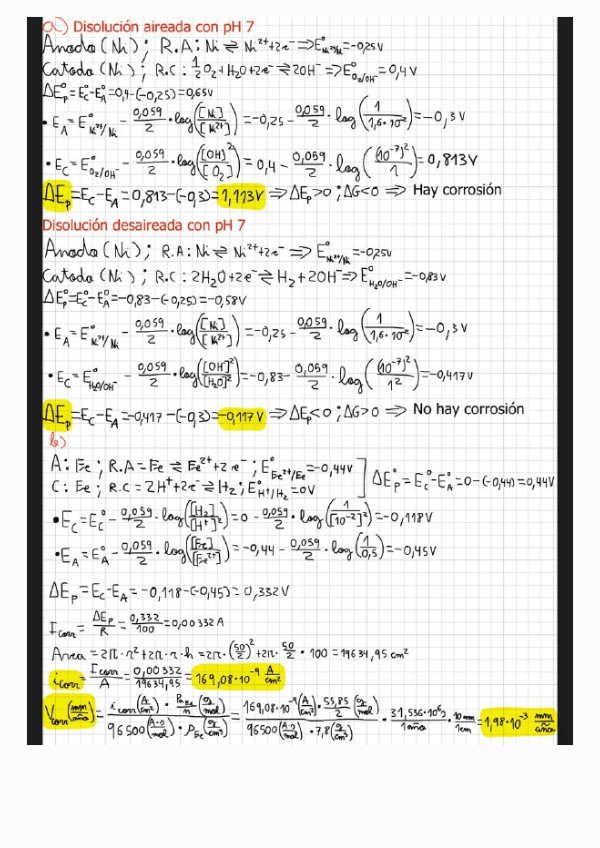 a) Disolución aireada con pH 7
Anodo (Ni); R.A: Ni ⇌ Ni²⁺+2e⁻ ⇒ E°Ni²⁺/Ni = -0,25V
Catodo (Ni); R.C: 1/2 O₂+H₂O+2e⁻ ⇌ 2OH⁻ ⇒ E°O₂/OH⁻ = 0,4V
ΔE°p=E°c-E°A=0,4-(-0,25)=0,65V
• EA=E°Ni²⁺/Ni - 0,059/2 · log([Ni]/[Ni²⁺]) = -0,25 - 0,059/2 · log(1/1,6·10⁻²) = -0,3V
• Ec=E°O₂/OH⁻ - 0,059/2 · log([OH]²/[O₂]) = 0,4 - 0,059/2 · log((10⁻⁷)²/1) = 0,813V
ΔEp=Ec-EA=0,813-(-0,3)=1,113V ⇒ ΔEp>0; ΔG<0 ⇒ Hay corrosión
Disolución desaireada con pH 7
Anodo (Ni); R.A: Ni ⇌ Ni²⁺+2e⁻ ⇒ E°Ni²⁺/Ni = -0,25V
Catodo (Ni); R.C: 2H₂O+2e⁻ ⇌ H₂+2OH⁻ ⇒ E°H₂O/OH⁻ = -0,83V
ΔE°p=E°c-E°A=-0,83-(-0,25)=-0,58V
• EA=E°Ni²⁺/Ni - 0,059/2 · log([Ni]/[Ni²⁺]) = -0,25 - 0,059/2 · log(1/1,6·10⁻²) = -0,3V
• Ec=E°H₂O/OH⁻ - 0,059/2 · log([OH]²/[H₂O]²) = -0,83 - 0,059/2 · log((10⁻⁷)²/1²) = -0,417V
ΔEp=Ec-EA=-0,417-(-0,3)=-0,117V ⇒ ΔEp<0; ΔG>0 ⇒ No hay corrosión
b)
A: Fe; R.A = Fe ⇌ Fe²⁺+2e⁻; E°Fe²⁺/Fe = -0,44V
C: Fe; R.C = 2H⁺+2e⁻ ⇌ H₂; E°H⁺/H₂ = 0V
ΔE°p=E°c-E°A=0-(-0,44)=0,44V
• Ec=E°c - 0,059/2 · log([H₂]/[H⁺]²) = 0 - 0,059/2 · log(1/[10⁻²]²) = -0,118V
• EA=E°A - 0,059/2 · log([Fe]/[Fe²⁺]) = -0,44 - 0,059/2 · log(1/0,5) = -0,45V
ΔEp=Ec-EA=-0,118-(-0,45)=0,332V
Icorr = ΔEp/R = 0,332/100 = 0,00332A
Area = 2π·r²+2π·r·h = 2π·(50/2)²+2π·50/2·100 = 19634,95cm²
icorr = Icorr/A = 0,00332/19634,95 = 169,08·10⁻⁹ A/cm²
Vcorr(mm/año) = icorr(A/cm²)·PaFe/n(g/mol) / 96500(A·s/mol)·ρFe(g/cm³) = 169,08·10⁻⁹(A/cm²)·55,85/2(g/mol) / 96500(A·s/mol)·7,8(g/cm³) · 31,536·10⁶s/1año · 10mm/1cm = 1,98·10⁻³ mm/año